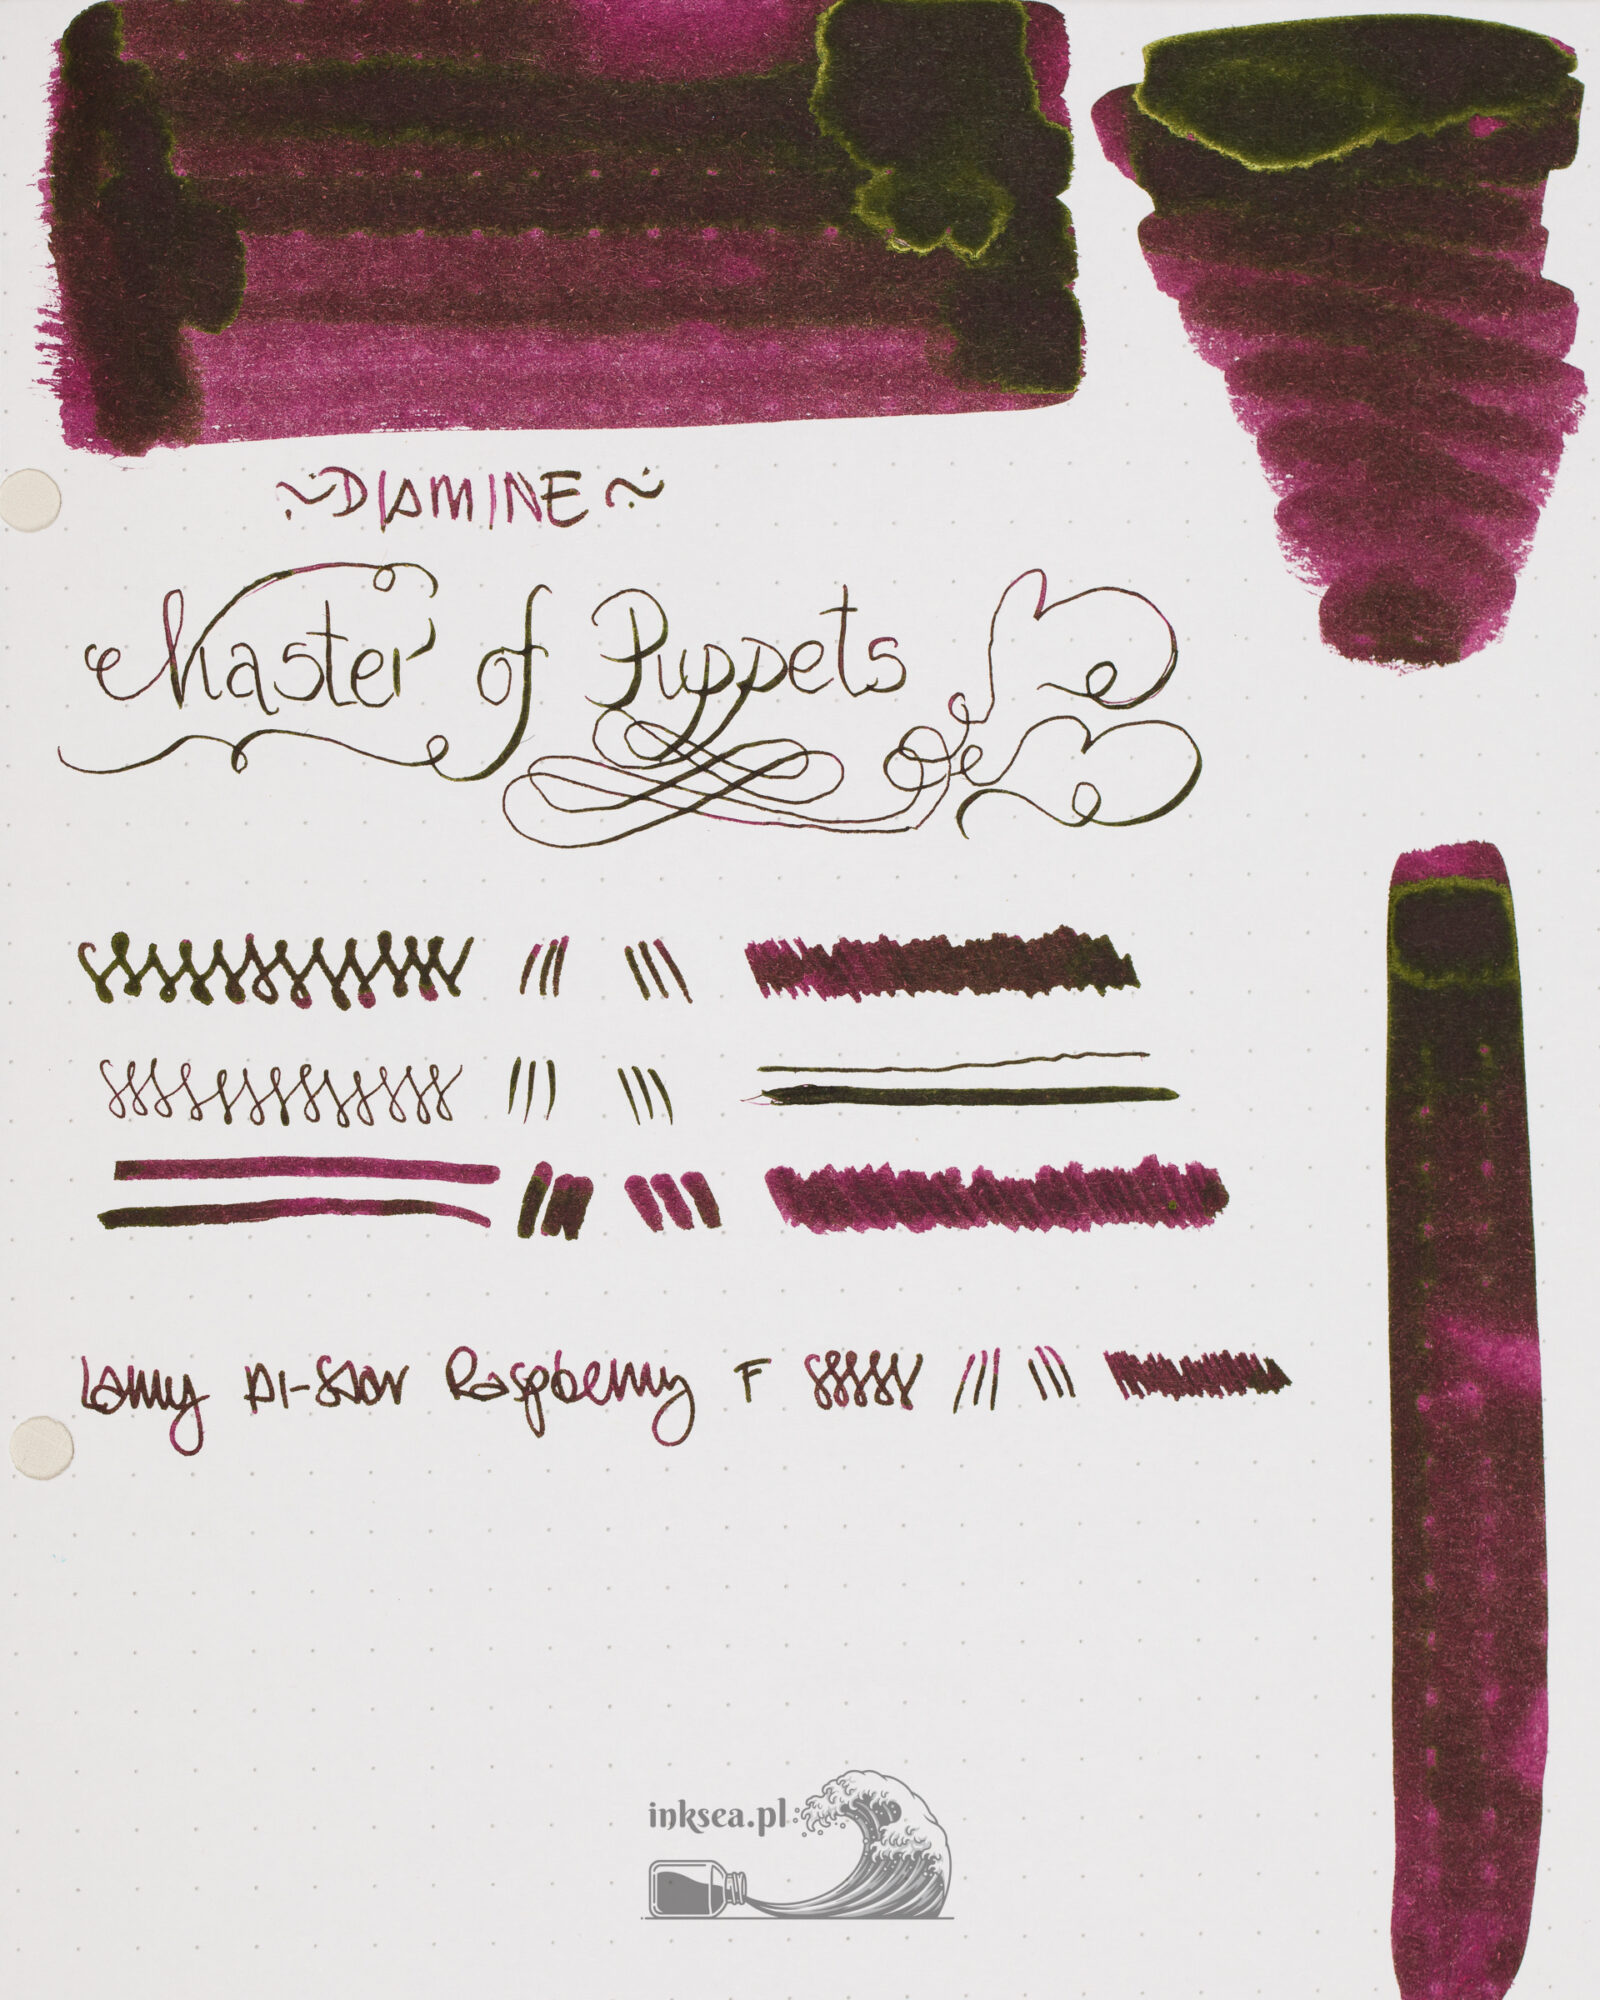 ~DIAMINE~
Master of Puppets
Lamy Al-Star Raspberry F
inksea.pl